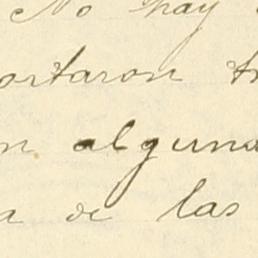 No hay
ortaron tr
n alguna
a de las